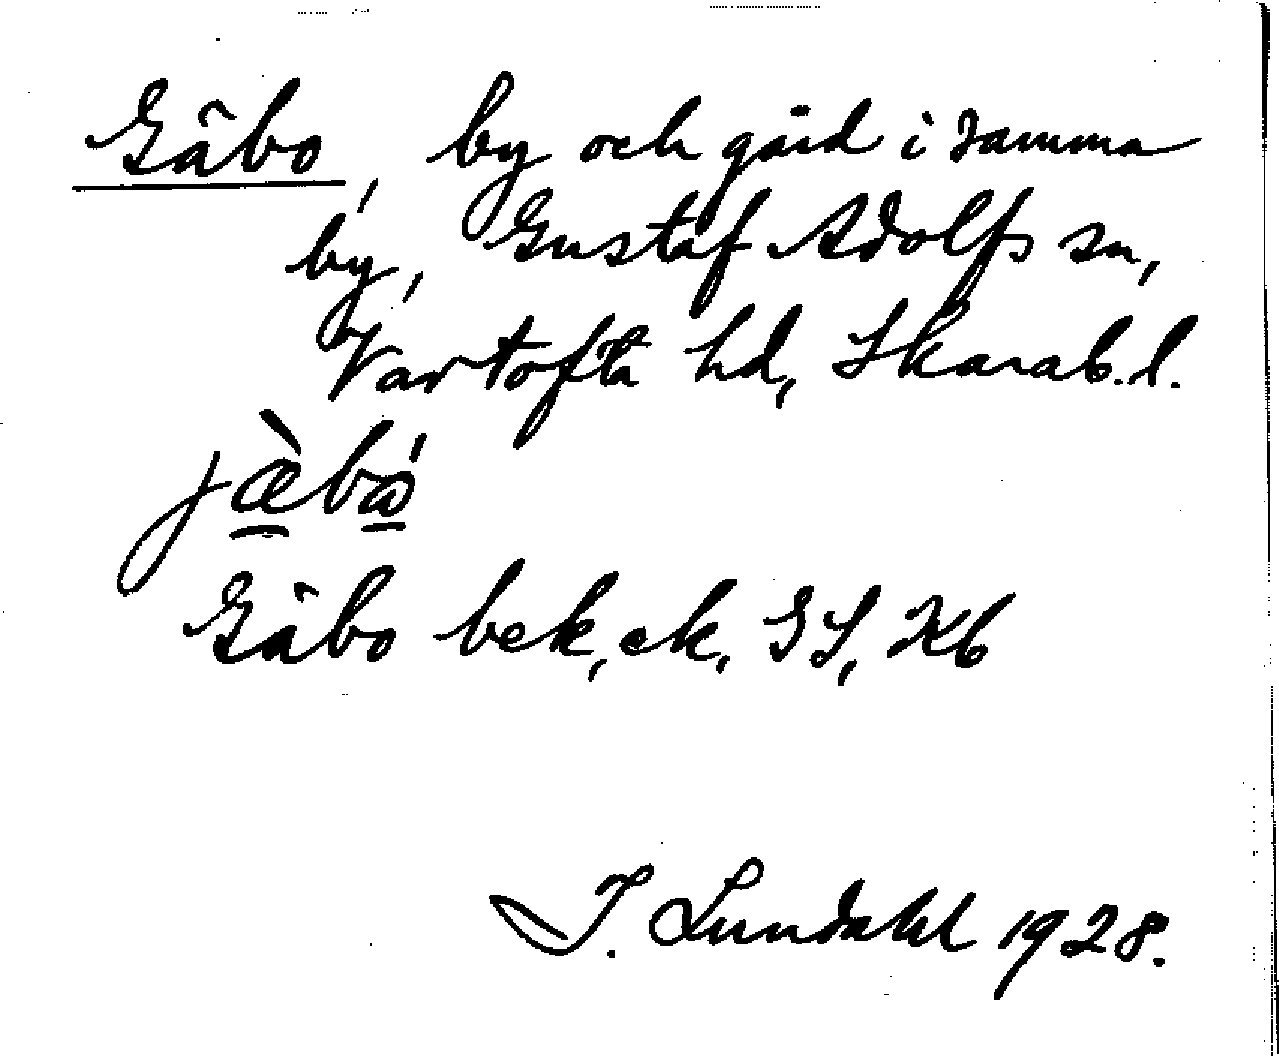 Gäbo, by och gård i samma
by, Gustaf Adolfs sn,
Vartofta hd, Skarab. l.
jæ̀bó
Gäbo bek, ek, GS, Kb
I. Lundahl 1928.